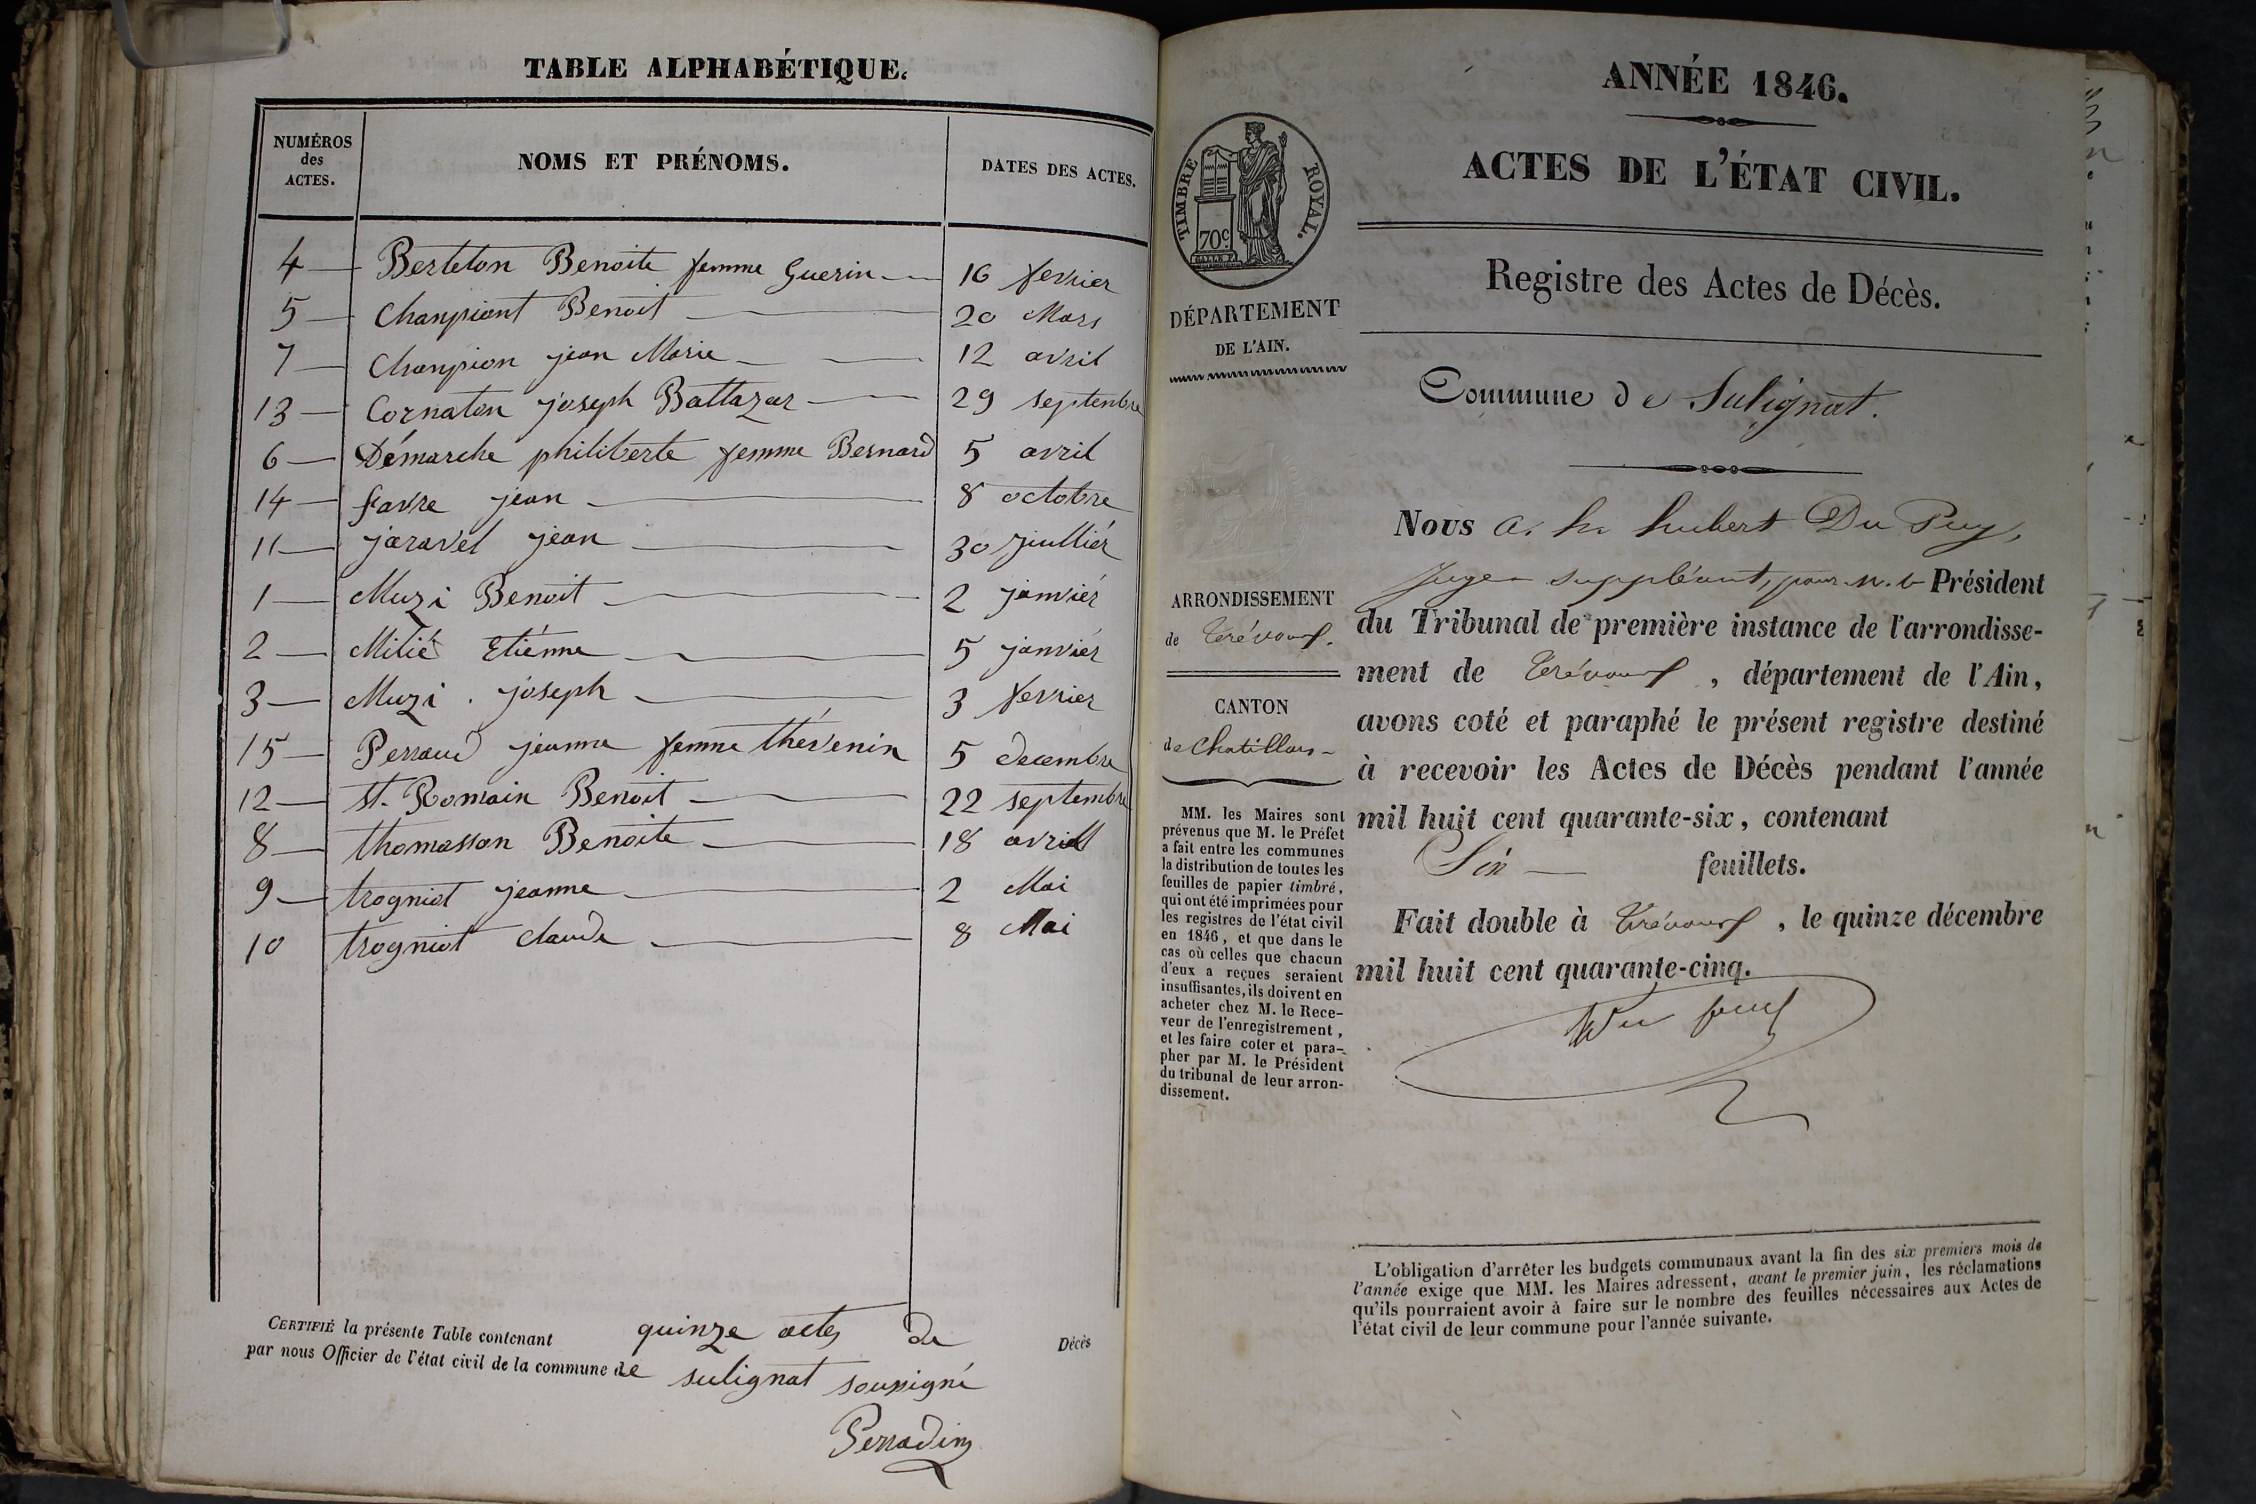 TABLE ALPHABÉTIQUE.
NUMÉROS des ACTES. NOMS ET PRÉNOMS. DATES DES ACTES.
4 Berteton Benoite femme Guerin 16 fevrier
5 Championt Benoit 20 Mars
7 Champion jean Marie 12 avril
13 Cornaton joseph Baltazar 29 septembre
6 Démarche philiberte femme Bernard 5 avril
14 favre jean 8 octobre
11 jaravel jean 30 juilliér
1 Muzi Benoit 2 janviér
2 Milié Etiénne 5 janviér
3 Muzi . joseph 3 fevrier
15 Perraud jeanne femme thévenin 5 decembre
12 st. Romain Benoit 22 septembre
8 thomasson Benoite 18 avril
9 trogniot jeanne 2 Mai
10 trogniot claude 8 Mai
CERTIFIÉ la présente Table contenant quinze actes de Décès
par nous Officier de l'état civil de la commune de sulignat sousigné
Perradin
ANNÉE 1846.
ACTES DE L'ÉTAT CIVIL.
Registre des Actes de Décès.
TIMBRE ROYAL.
70c
DÉPARTEMENT
DE L'AIN.
ARRONDISSEMENT
de Trévoux.
CANTON
de Chatillon
MM. les Maires sont
prévenus que M. le Préfet
a fait entre les communes
la distribution de toutes les
feuilles de papier timbré,
qui ont été imprimées pour
les registres de l'état civil
en 1846, et que dans le
cas où celles que chacun
d'eux a reçues seraient
insuffisantes, ils doivent en
acheter chez M. le Rece-
veur de l'enregistrement,
et les faire coter et para-
pher par M. le Président
du tribunal de leur arron-
dissement.
Commune de Sulignat.
Nous a. h. hubert Du Puy,
Juge suppléant, pour M. le Président
du Tribunal de première instance de l'arrondisse-
ment de Trévoux, département de l'Ain,
avons coté et paraphé le présent registre destiné
à recevoir les Actes de Décès pendant l'année
mil huit cent quarante-six, contenant
Six feuillets.
Fait double à Trévoux, le quinze décembre
mil huit cent quarante-cinq.
L'obligation d'arrêter les budgets communaux avant la fin des six premiers mois de
l'année exige que MM. les Maires adressent, avant le premier juin, les réclamations
qu'ils pourraient avoir à faire sur le nombre des feuilles nécessaires aux Actes de
l'état civil de leur commune pour l'année suivante.